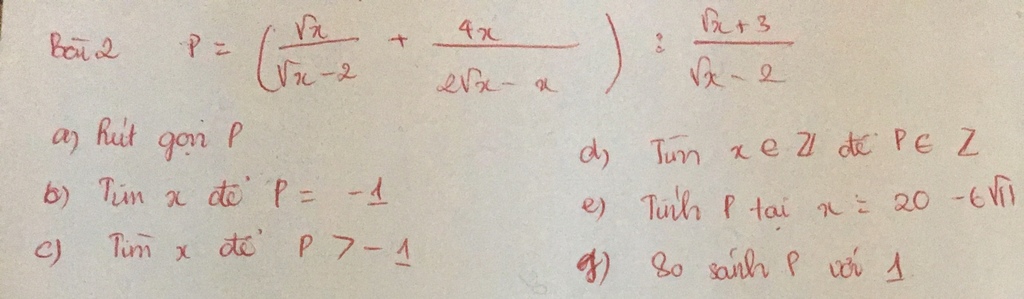 Bài 2 P = (√x / (√x - 2) + 4x / (2√x - x)) : (√x + 3) / (√x - 2)
a) Rút gọn P
b) Tìm x để P = -1
c) Tìm x để P > -1
d) Tìm x ∈ Z để P ∈ Z
e) Tính P tại x = 20 - 6√11
g) So sánh P với 1